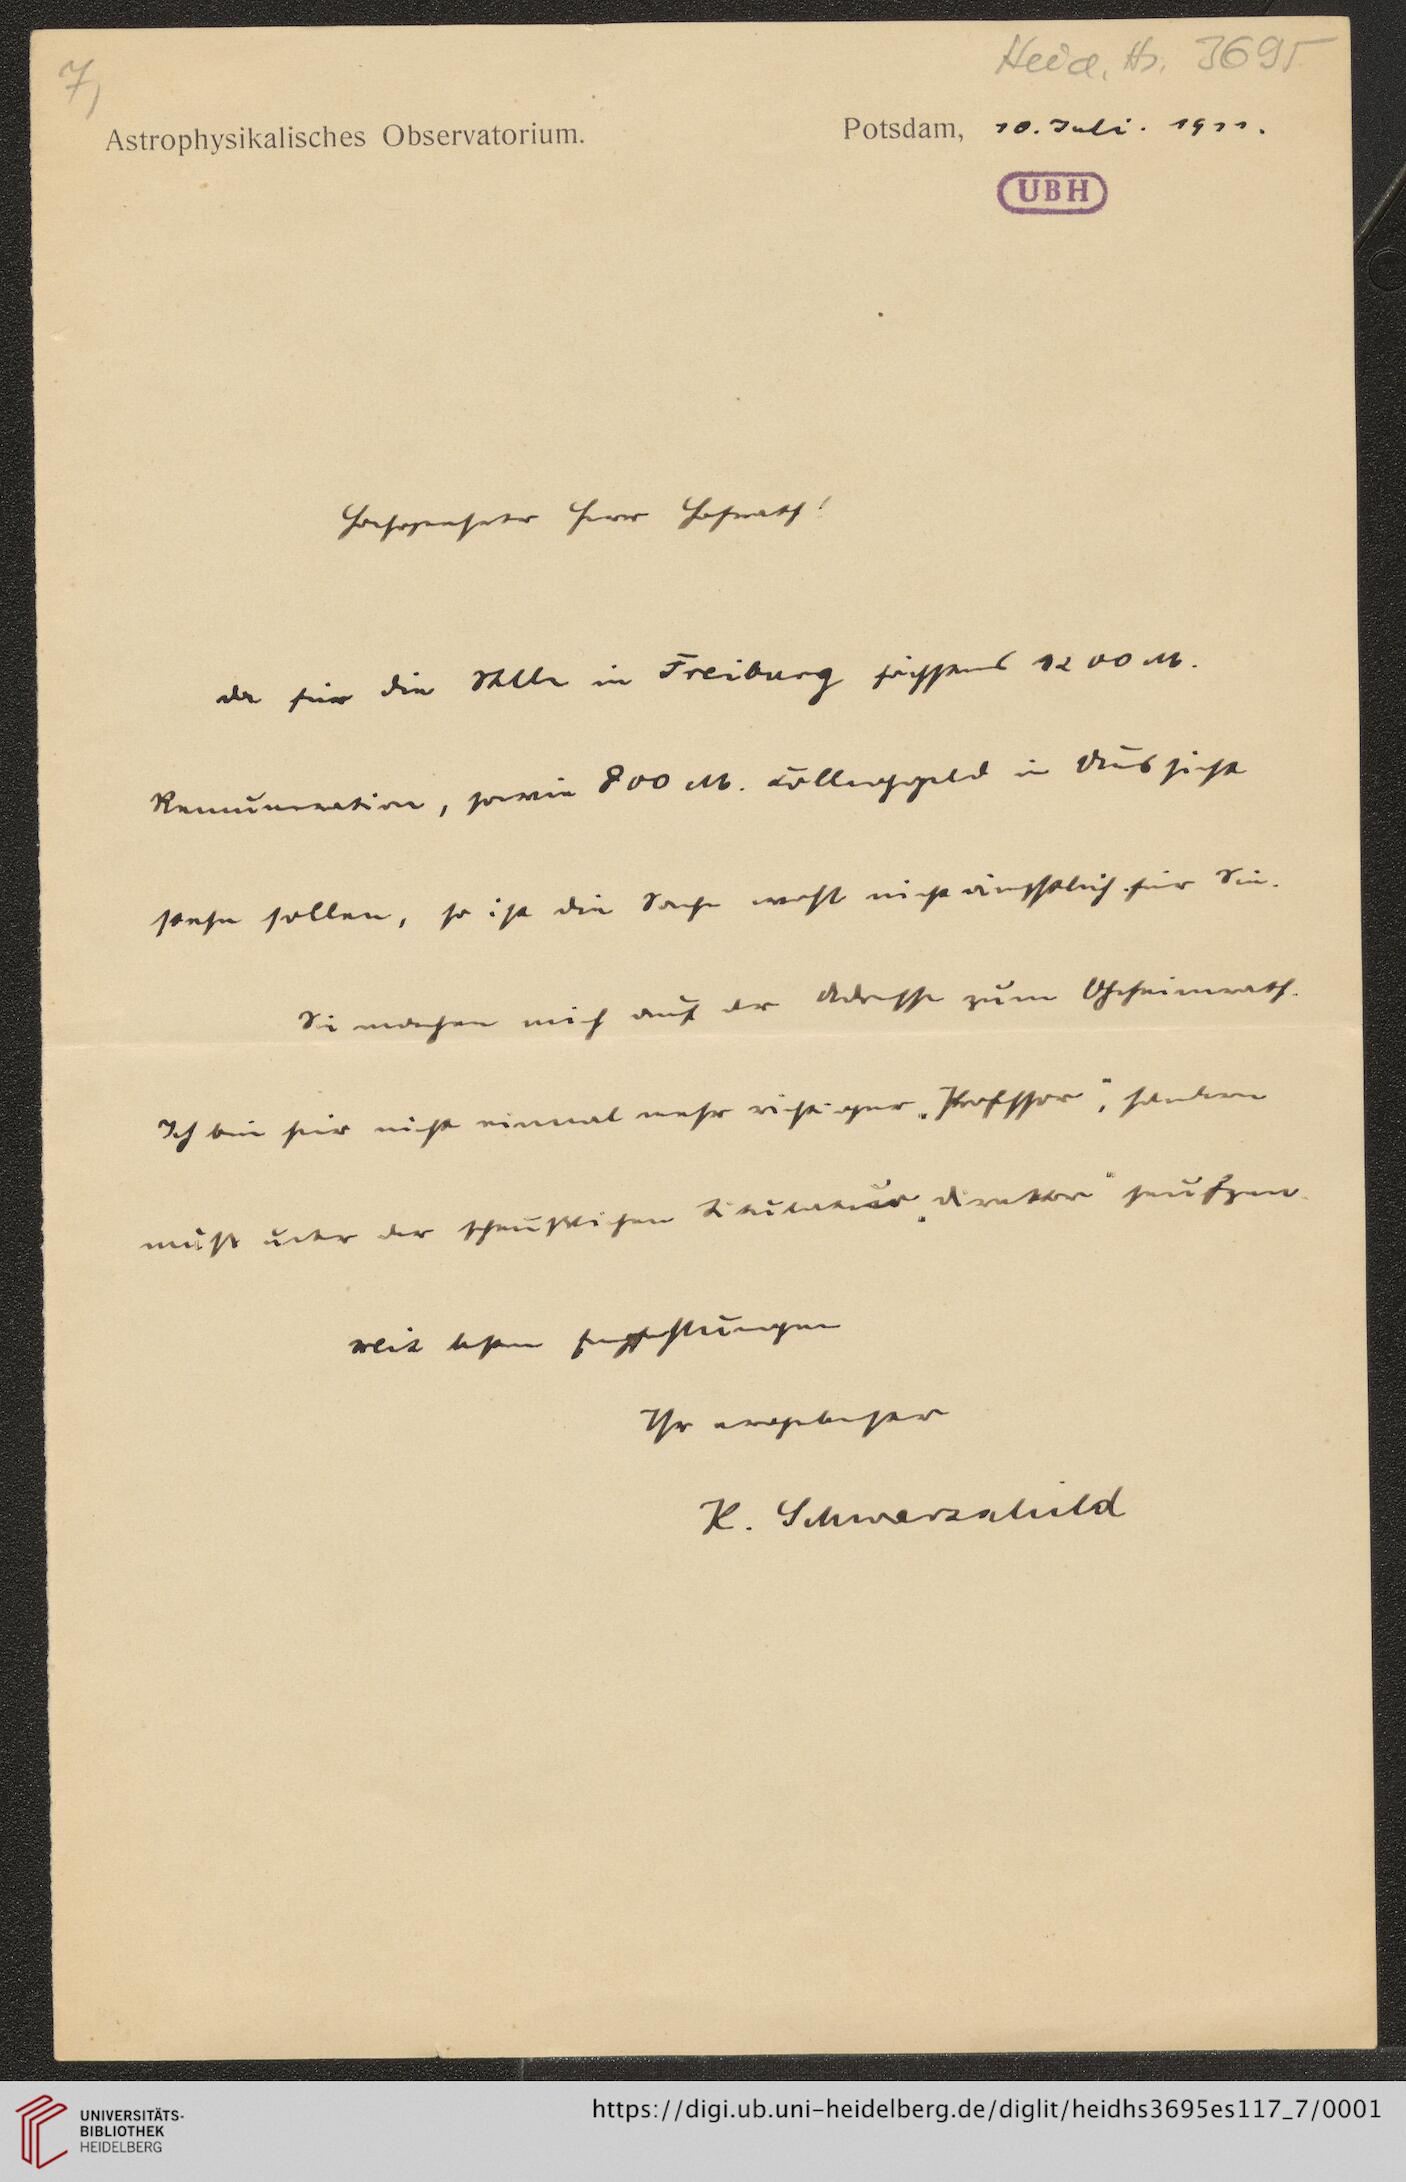 7)
Heid. Hs. 3695
Astrophysikalisches Observatorium.
Potsdam, 10. Juli. 1911.
UBH
Hochgeehrter Herr Hofrath!
da für die Stelle in Freiburg höchstens 1200 M.
Remuneration, sowie 800 M. Colleggeld in Aussicht
stehn sollen, so ist die Sache wohl nicht für Sie.
Sie machen mich auf der Adresse zum Geheimrath.
Ich bin hier nicht einmal mehr richtiger „Professor“, sondern
muß unter der scheußlichen Titulatur „Direktor“ seufzen.
Mit besten Empfehlungen
Ihr ergebenster
K. Schwarzschild
UNIVERSITÄTS-
BIBLIOTHEK
HEIDELBERG
https://digi.ub.uni-heidelberg.de/diglit/heidhs3695es117_7/0001